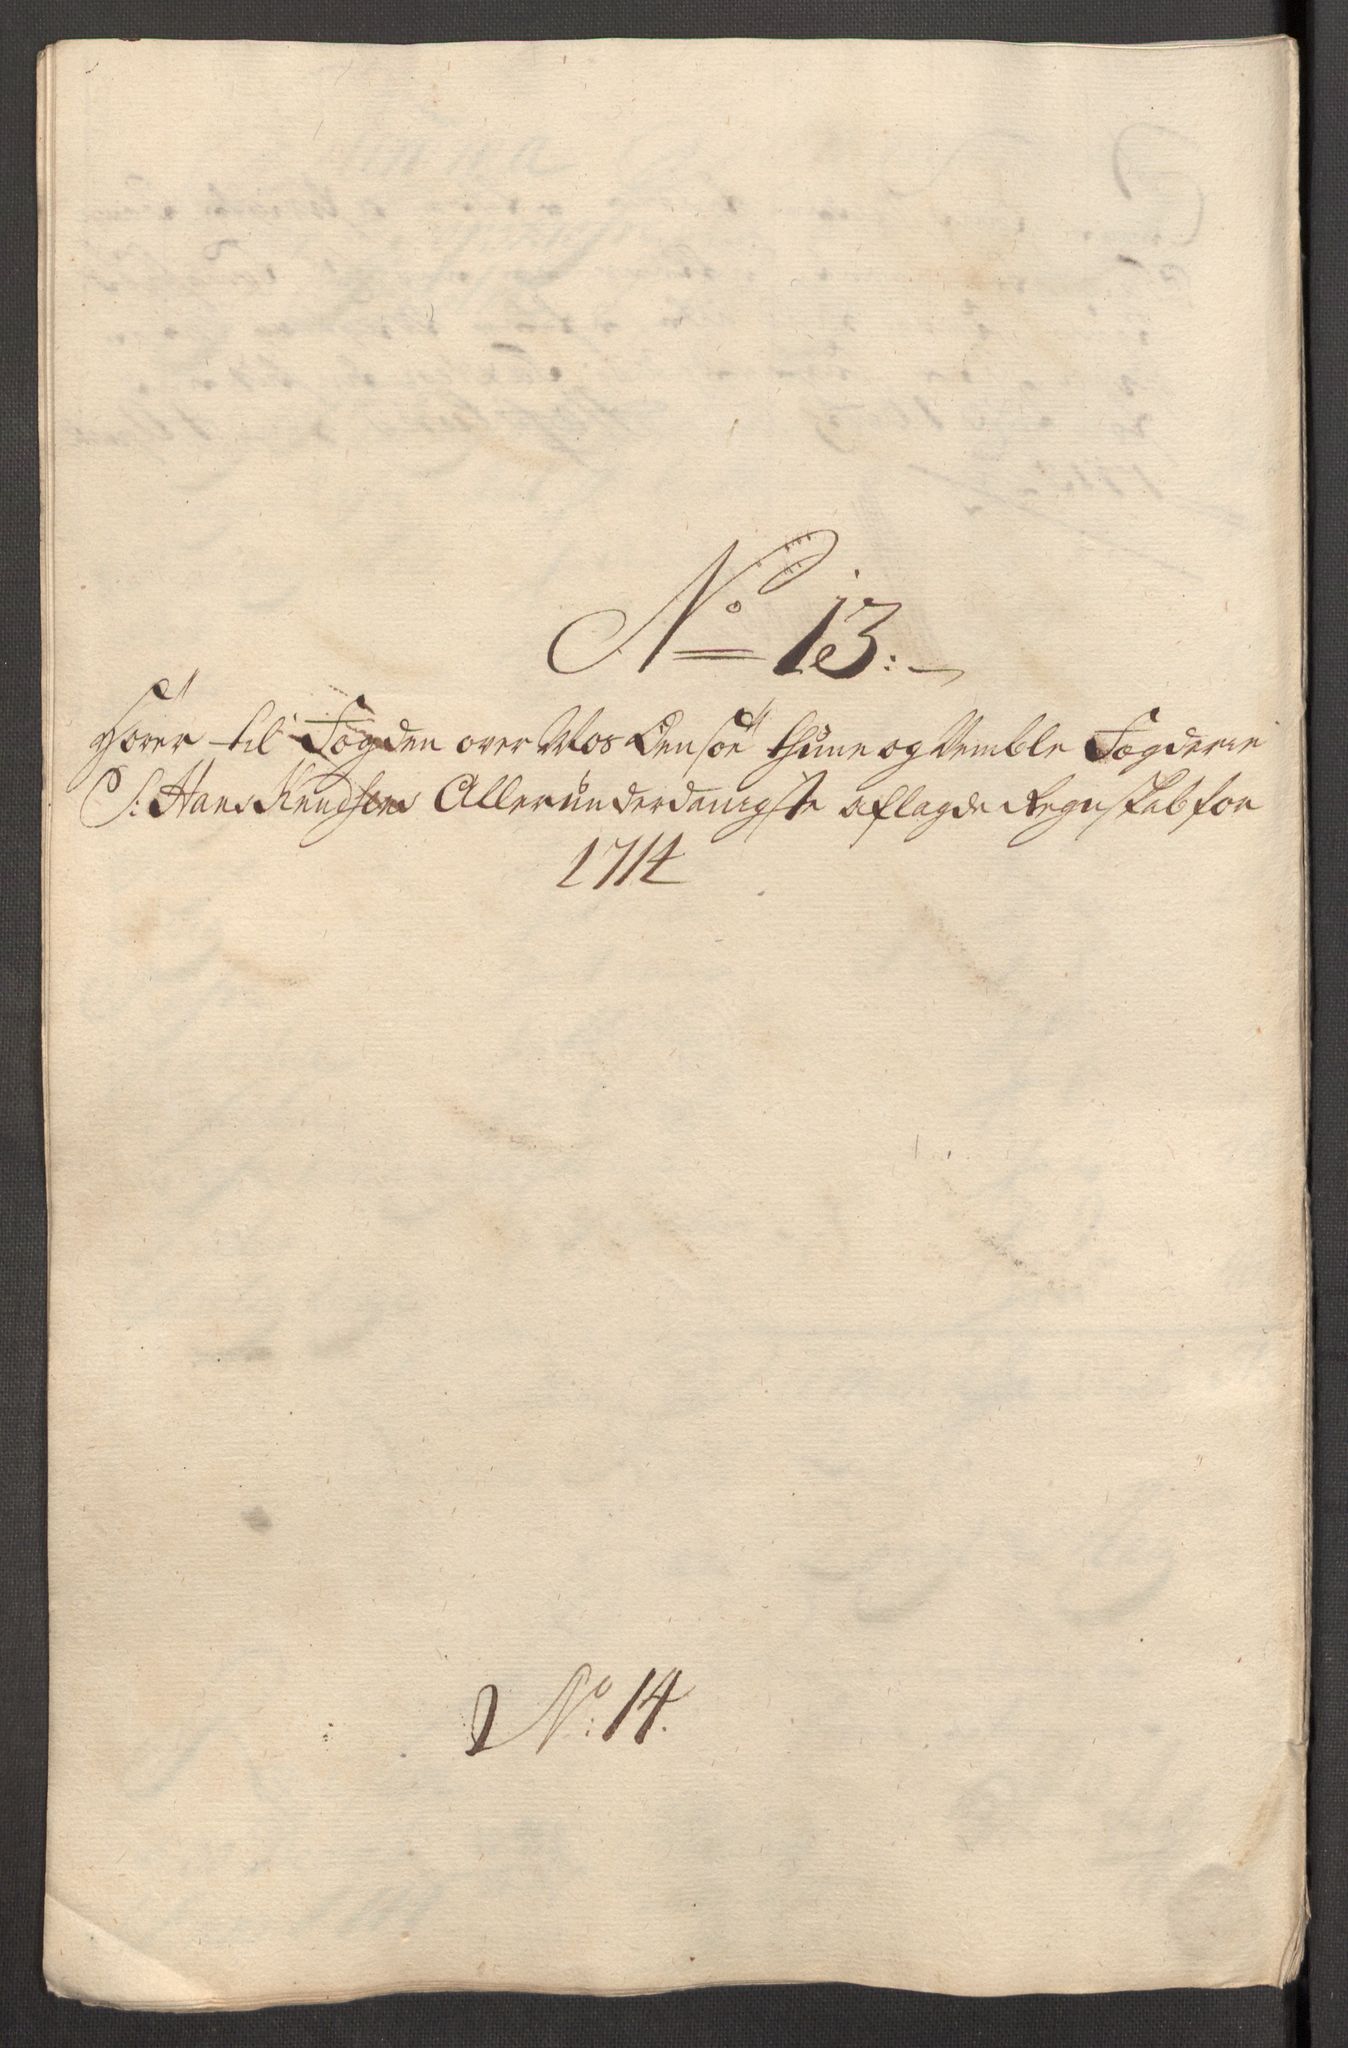 No 13:
Hörer til Fogden over Mos Onsöe thüne og Vemble Fogderie
S: Hans Knudsens Alleründerdanigste aflagde Regnskab for
1714
No: 14.